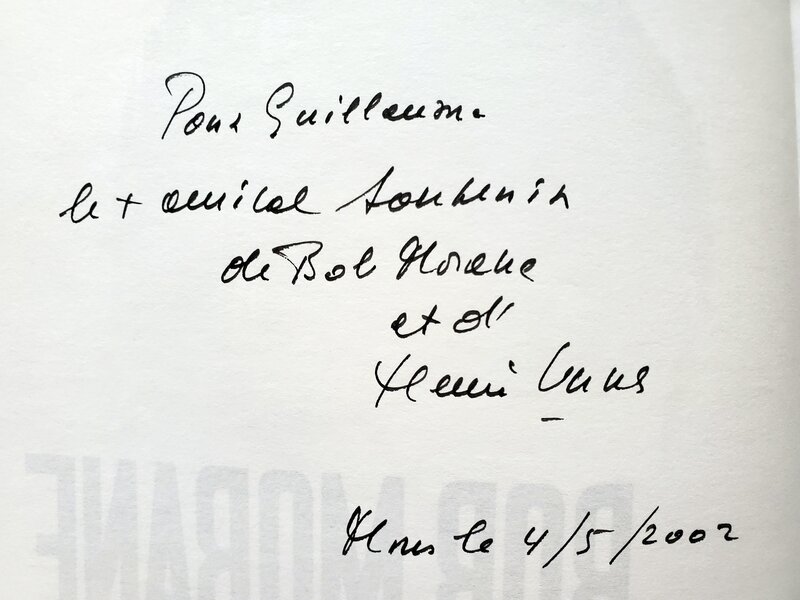 Pour Guillaume
le + amical souvenir
de Bob Morane
et d'
Henri Vernes
Mons le 4/5/2002
BOB MORANE